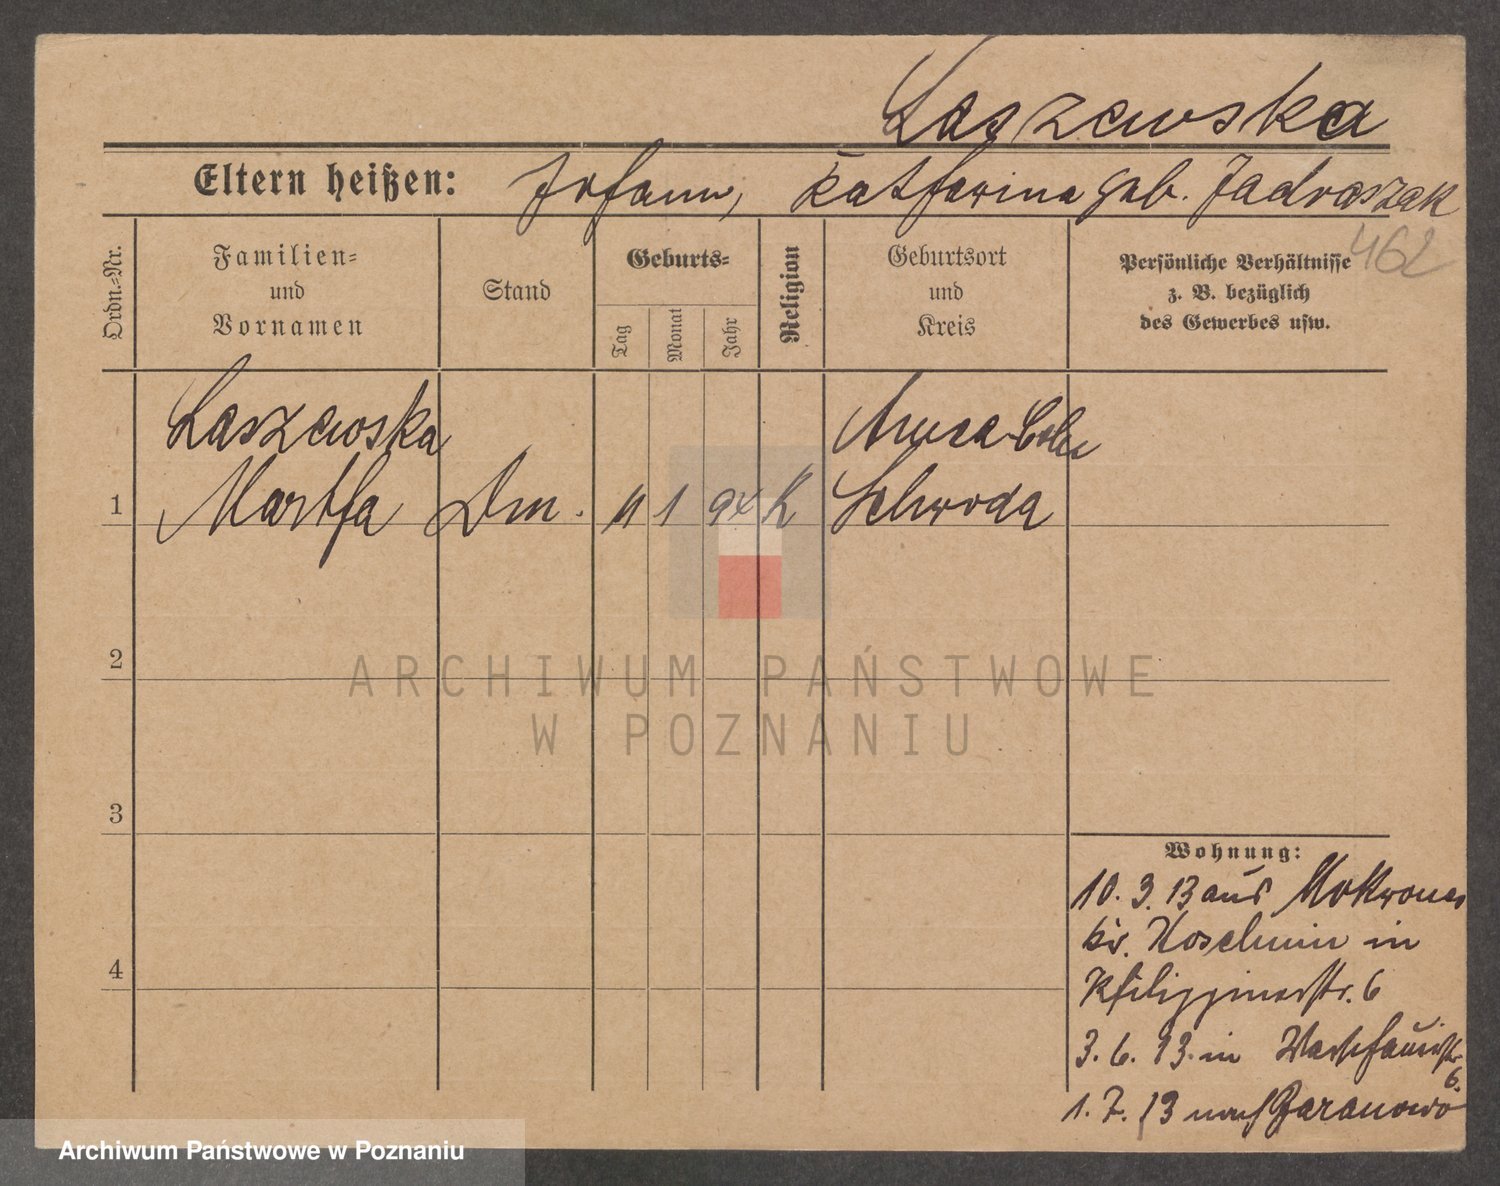 Laszewska
Eltern heißen: Johann, Katharina geb. Jadraszak
462
Ordn.=Nr.
Familien=
und
Vornamen
Stand
Geburts=
Tag
Monat
Jahr
Religion
Geburtsort
und
Kreis
Persönliche Verhältnisse
z. B. bezüglich
des Gewerbes usw.
Laszewska
1 Martha Dm. 11 1 94 K Schroda
2
3
4
ARCHIWUM PAŃSTWOWE
W POZNANIU
Wohnung:
10. 3. 13 aus Mokronos
Kr. Koschmin in
Philippinerstr. 6
3. 6. 13. in
6.
1. 7. 13 nach Baranowo
Archiwum Państwowe w Poznaniu